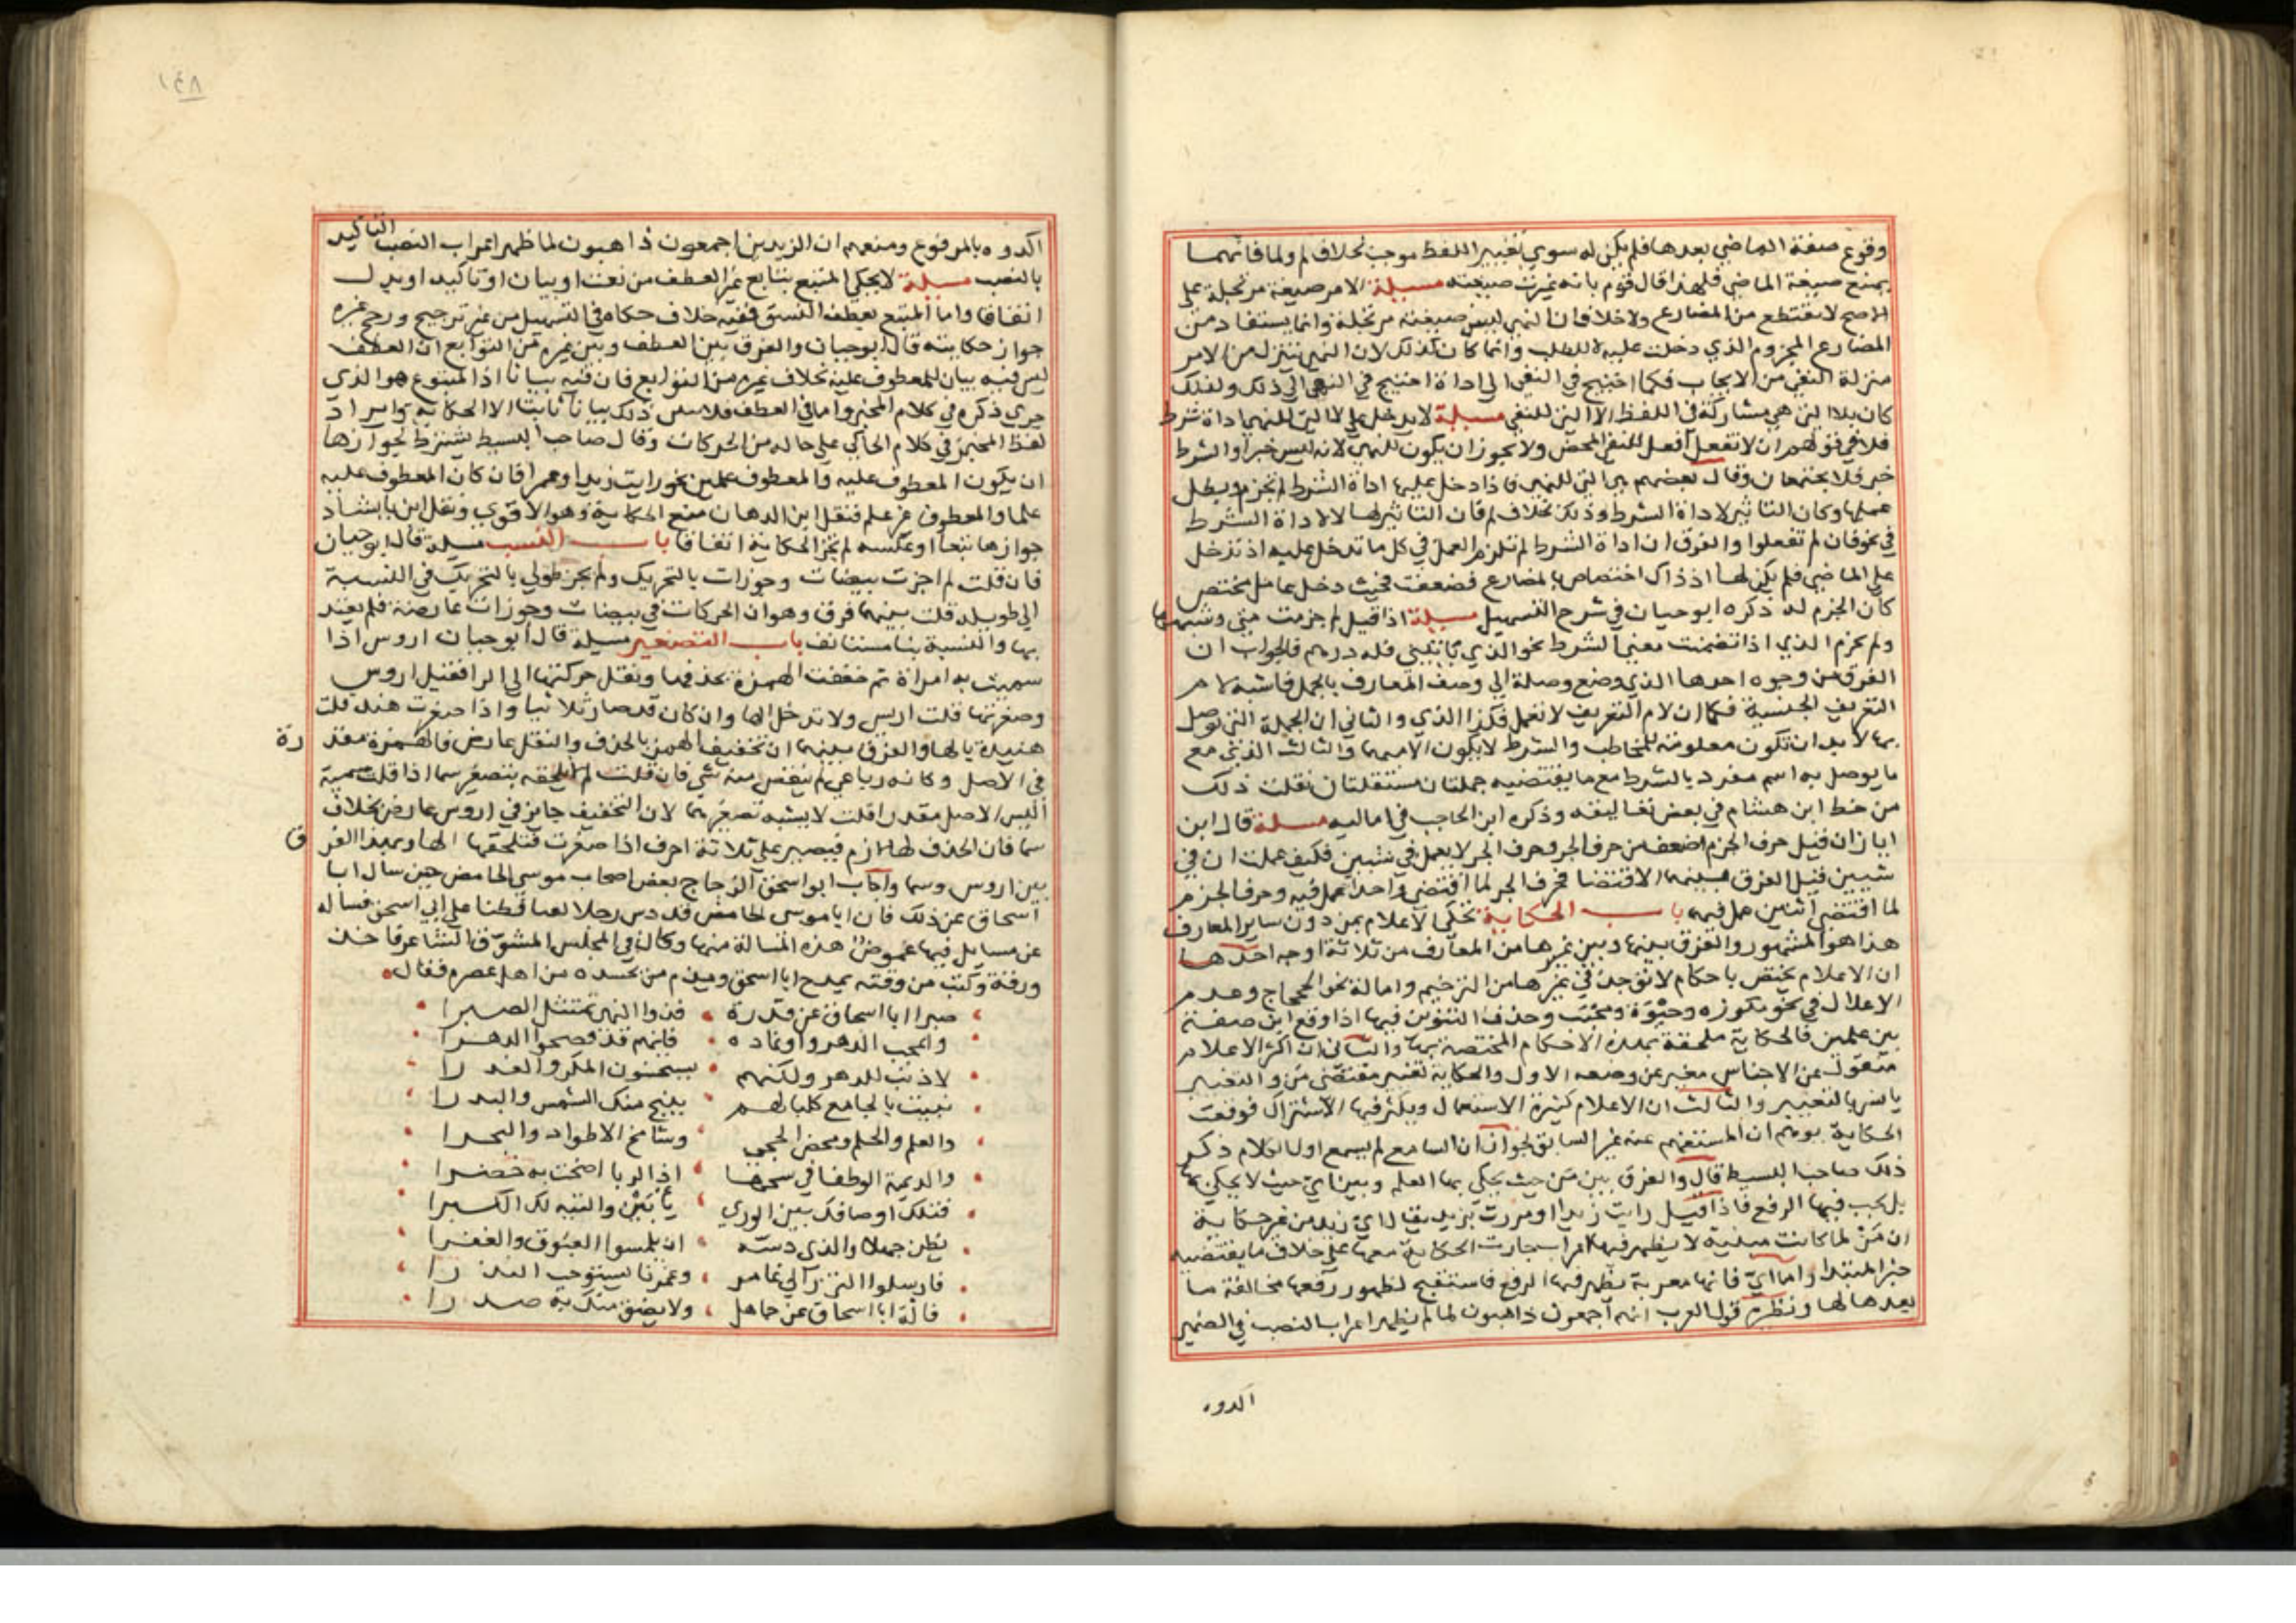 وقوع صفة الماضي بعدها فلم يكن له سوي تغيير اللفظ موجب بخلاف لم ولما فانهما
يمتنع صيغة الماضي فلهذا قال قوم بانه غيرت صيغته مسيلة الامر صيغة مرتجلة علي
الاصح لا مقتطع من المضارع ولا خلاف ان النهي ليس صيغته مرتجلة وانما يستفاد من
المضارع المجزوم الذي دخلت عليه لا للطلب وانما كان كذلك لان النهي يتنزل من الامر
منزلة النفي من الايجاب فكما احتيج في النفي الي اداة احتيج في النهي الي ذلك ولذلك
كان بلا التي هي مشاركة في اللفظ لا التي للنفي مسيلة لا يدخل علي لا التي للنهي اداة شرط
فلا في قولهم ان لا تفعل افعل للنفي المحض ولا يجوز ان يكون للنهي لانه ليس خبرا والشرط
خبر فلا يجتمعان وقال بعضهم هي التي للنهي فاذا دخل عليها اداة الشرط لم تجزم وبطل
عملها وكان التاثير لاداة الشرط وذلك بخلاف لم فان التاثير لها لا لاداة الشرط
في نحو فان لم تفعلوا والفرق ان اداة الشرط لم تلزم العمل في كل ما تدخل عليه اذ تدخل
علي الماضي فلم يكن لها اذ ذاك اختصاص بالمضارع فضعفت فحيث دخل عامل مختص
كان الجزم له ذكره ابو حيان في شرح التسهيل مسيلة اذا قيل لم جزمت متي وشبهها
ولم يجزم الذي اذا تضمنت معني الشرط نحو الذي ياتيني فله درهم فالجواب ان
الفرق من وجوه احدها الذي وضع وصلة الي وصف المعارف بالجمل فاشبه لام
التعريف الجنسية فكما ان لام التعريف لا تعمل فكذا الذي والثاني ان الجملة التي توصل
بها لا بد ان تكون معلومة للمخاطب والشرط لا يكون الا مبهما والثالث الذي مع
ما يوصل به اسم مفرد والشرط مع ما يقتضيه جملتان مستقلتان نقلت ذلك
من خط ابن هشام في بعض تعاليقه وذكره ابن الحاجب في اماليه مسيلة قال ابن
اياز ان قيل حرف الجزم اضعف من حرف الجر وحرف الجر لا يعمل في شيين فكيف عملت ان في
شيين قيل الفرق بينهما الاقتضا فحرف الجر لما اقتضي واحدا عمل فيه وحرف الجزم
لما اقتضي اثنين عمل فيهما باب الحكاية تحكي الاعلام بمن دون ساير المعارف
هذا هو المشهور والفرق بينها وبين غيرها من المعارف من ثلاثة اوجه احدها
ان الاعلام تختص باحكام لا توجد في غيرها من الترخيم وامالة نحو الحجاج وعدم
الاعلال في نحو مكوزه وحيوة ومحبب وحذف التنوين فيها اذا وقع ابن صفة
بين علمين فالحكاية ملحقة بهذه الاحكام المختصة بها والثاني ان اكثر الاعلام
منقول عن الاجناس مغير عن وضعه الاول والحكاية تغيير مقتضي من والتغيير
يانس بالتغيير والثالث ان الاعلام كثيرة الاستعمال ويكثر فيها الاشتراك فوقعت
الحكاية بوهم ان المستفهم عنه غير السابق لجواز ان السامع لم يسمع اول الكلام ذكر
ذلك صاحب البسيط قال والفرق بين من حيث يحكي بها العلم وبين اي حيث لا يحكي بها
بل يجب فيها الرفع فاذا قيل رايت زيدا او مررت بزيد يقال اي زيد من غير حكاية
ان من لما كانت مبنية لا يظهر فيها اعراب جازت الحكاية معها علي خلاف ما يقتضيه
خبر المبتدا واما اي فانها معربة يظهر فيها الرفع فاستقبح لظهور رفعها مخالفة ما
بعدها لها ونظره قول العرب انهم اجمعون ذاهبون لما لم يظهر اعراب النصب في الضمير
اكدوه
١٤٨
اكدوه بالمرفوع ومنعهم ان الزيدين اجمعون ذاهبون لما ظهر اعراب النصب التاكيد
بالنصب مسيلة لا يحكي المتبع بتابع غير العطف من نعت او بيان او تاكيد او بدل
اتفاقا واما المتبع بعطف النسق ففيه خلاف حكاه في التسهيل من غير ترجيح ورجح غيره
جواز حكايته قال ابو حيان والفرق بين العطف وبين غيره من التوابع ان العطف
ليس فيه بيان للمعطوف عليه بخلاف غيره من التوابع فان فيه بيانا اذ المتبوع هو الذي
جري ذكره في كلام المخبر واما في العطف فلا ذلك بيانا ثابتا الا الحكاية وايراد
لفظ المخبر في كلام الحاكي علي حاله من الحركات وقال صاحب البسيط يشترط لجوازها
ان يكون المعطوف عليه والمعطوف علمين نحو رايت زيدا وعمرا فان كان المعطوف عليه
علما والمعطوف غير علم فنقل ابن الدهان منع الحكاية وهو الاقوي ونقل ابن بابشاذ
جوازها تبعا او عكسه لم تجز الحكاية اتفاقا باب النسب مسيلة قال ابو حيان
فان قلت لم اجزت بيضات وجوزات بالتحريك ولم يجز طولي بالتحريك في النسبة
الي طويلة قلت بينهما فرق وهو ان الحركات في بيضات وجوزات عارضة فلم يعتد
بها والنسبة بنا مستانف باب التصغير مسيلة قال ابو حيان اروس اذا
سميت به امراة ثم خففت الهمزة بحذفها ونقل حركتها الي الرا فقيل اروس
وصغرتها قلت اريس ولا تدخل الها وان كان قد صار ثلاثيا واذا صغرت هند قلت
هنيدة بالها والفرق بينهما ان تخفيف الهمز بالحذف والنقل عارض فالهمزة مقدرة
في الاصل وكانه رباعي لم ينقص منه شي فان قلت لم لا تلحقه بتصغير سما اذا قلت سمية
اليس الاصل مقدرا قلت لا يشبه تصغير سما لان التخفيف جايز في اروس عارض بخلاف
سما فان الحذف لها لازم فيصير علي ثلاثة احرف اذا صغرت فتلحقها الها وبهذا الفرق
بين اروس وسما واجاب ابو اسحق الزجاج بعض اصحاب موسي الحامض حين سال ابا
اسحاق عن ذلك فان ابا موسي الحامض قد دس رجلا لقنا فطنا علي ابي اسحق فساله
عن مسايل فيها غموض هذه المسالة منها وكان في المجلس المشوق الشاعر فاخذ
ورقة وكتب من وقته يمدح ابا اسحق ويذم من يحسده من اهل عصره فقال
صبرا ابا اسحاق عن قدرة فذوا النهي يمتثل الصبرا
واعجب الدهر واوغاده فانهم قد فضحوا الدهرا
لا ذنب للدهر ولكنهم يستحسنون المكر والغدرا
نبيت بالجامع كلبا لهم ينبح منك الشمس والبدرا
والعلم والحلم ومحض الحجي وشامخ الاطواد والبحرا
والديمة الوطفا في سحها اذا الربا اضحت به خضرا
فتلك اوصافك بين الوري يابين والتيه لك الكبرا
يظن جهلا والذي دسه ان يلمسوا العيوق والغفرا
فارسلوا النزر الي غامر وغمرنا يستوعب النزرا
فاله ابا اسحاق عن جاهل ولا يضق منك به صدرا